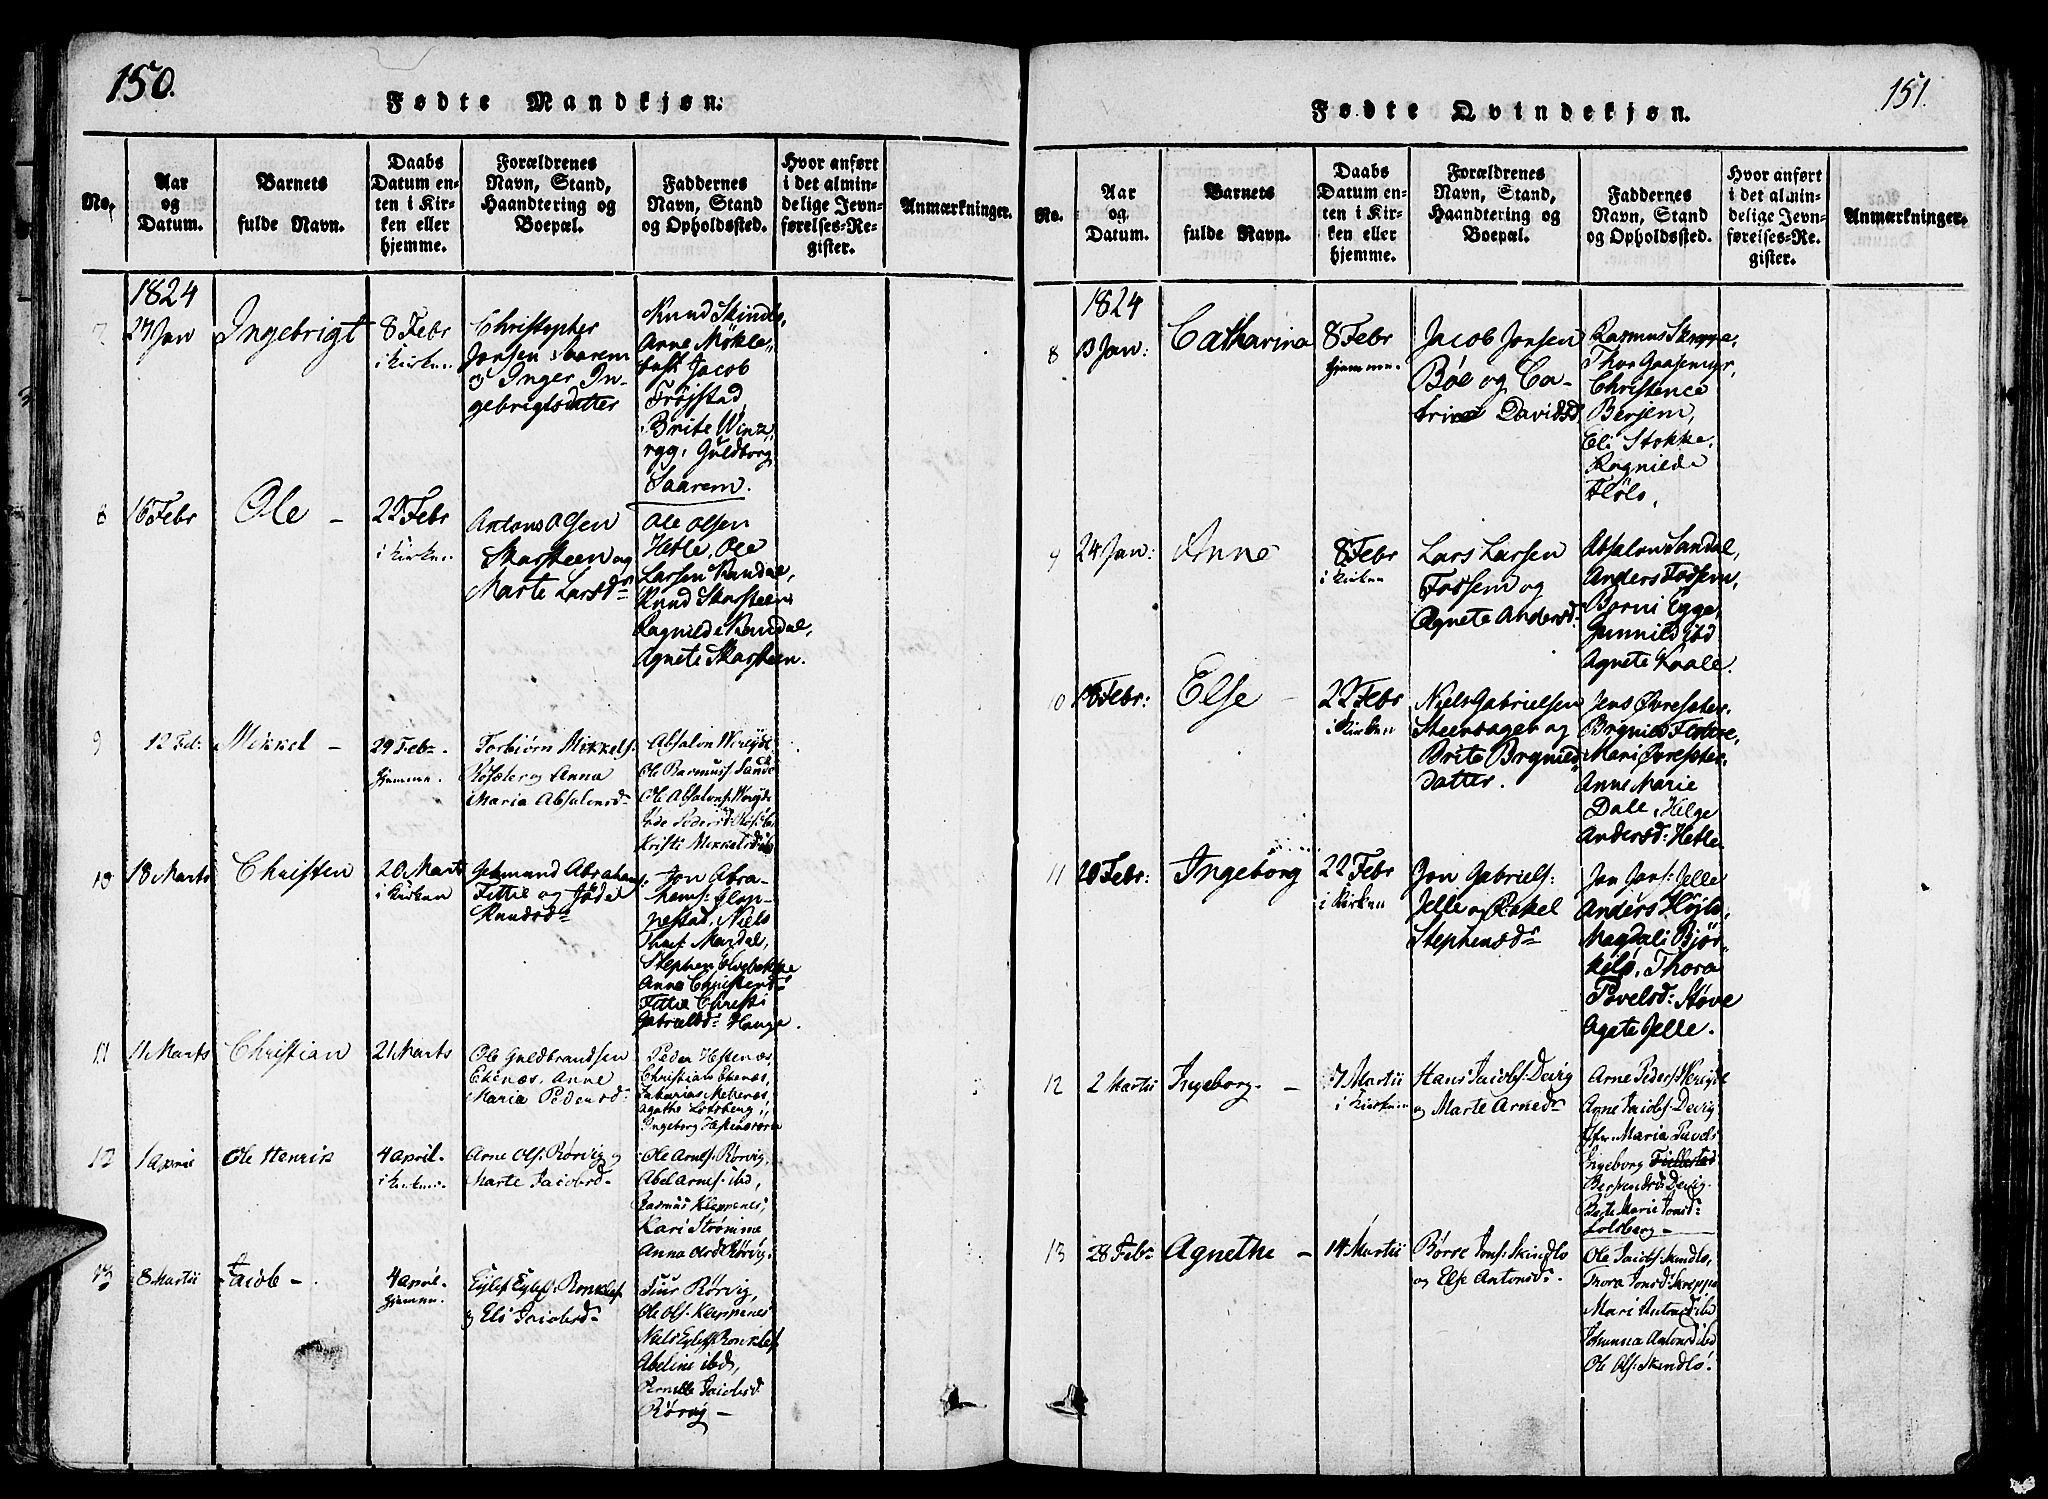 150.
Fødte Mandkjøn.
No.
Aar
og
Datum.
Barnets
fulde Navn.
Daabs
Datum en-
ten i Kir-
ken eller
hjemme.
Forældrenes
Navn, Stand,
Haandtering og
Boepæl.
Faddernes
Navn, Stand
og Opholdssted.
Hvor anført
i det almin-
delige Jevn-
førelses-Re-
gister.
Anmærkninger.
1824
7
27 Jan
Ingebrigt
8 Febr
i Kirken
Christopher
Jonsen Saarem
og Inger In-
gebrigtsdatter
Knud Skindlo,
Arne Mökle-
bust Jacob
Fröjstad
Brite
Guldborg
Saarem.
8
16 Febr
Ole –
22 Febr
i Kirken
Antons Olsen
Skarsteen og
Marte Larsdr
Ole Olsen
Hetle, Ole
Larsen Randal,
Knud Skarsteen
Ragnilde Randal,
Agnete Skarsteen.
9
12 Feb:
Mikkel –
29 Febr.
hjemme.
Torbiörn Mikkels:
og Anna
Maria Absalonsdr
Absalon Wereide
Ole Rasmuss: Sande
Ole Absalons: Wereide
Kristi Mikkelsd ibd
10
18 Marts
Christen
20 Marts
i Kirken
Gudmund Abrahams:
Fittie og Jöde
Knudsdr
Jon Abra-
hams: Glop-
pestad, Niels
Mardal,
Stephen
Anne Christensdr
Fittie Christi
Gabrielsdr Hauge.
11
11 Marts
Christian
21 Marts
Ole Guldbrandsen
Ekenæs, Anne
Maria Pedersdr
Peder Hestenæs,
Christian Ekenæs,
Zakarias Melhenæs,
Agathe Lotsberg,
Ingeborg
12
1 April
Ole Henrik
4 April.
i Kirken.
Arne Ols: Rørvig og
Marte Jacobsdr
Ole Arnes: Rørvig,
Abel Arnes: ibd,
Rasmus Kleppenes,
Kari Strömme
Anna Olsd Rörvig.
13
8 Martii
Jacob –
4 April.
hjemme.
og Eli Jacobsdr
Siur Rörvig,
Ole Ols: Kleppenes
Abeline ibd,
Pernille Jacobsd
Rörvig –
151.
Fødte Qvindekjøn.
No.
Aar
og
Datum.
Barnets
fulde Navn.
Daabs
Datum en-
ten i Kir-
ken eller
hjemme.
Forældrenes
Navn, Stand,
Haandtering og
Boepæl.
Faddernes
Navn, Stand
og Opholdssted.
Hvor anført
i det almin-
delige Jevn-
førelses-Re-
gister.
Anmærkninger.
1824
8
13 Jan:
Catharina
8 Febr
hjemme.
Jacob Jonsen
Böe og Ca-
trine Davidsd
Rasmus Skeppe,
Thor Gaasemyr,
Christence
Berjem,
Eli Stokke,
Ragnilde
Flölo,
9
24 Jan:
Anne
8 Febr
i Kirken
Lars Larsen
Fossem og
Agnete Andersd:
Absalon Sandal,
Anders Fossem,
Borni Egge,
Gunnild ibd
Agnete Kaale.
10
18 Febr:
Else –
22 Febr
i Kirken
Niels Gabrielsen
Steensager og
Brite Brynild
datter.
Jens Övresæter,
Brynild Fløtre,
Mari Övresæter.
Anne Marie
Dale, Helge
Andersd: Hetle
11
20 Febr:
Ingeborg
22 Febr
i Kirken
Jon Gabriels:
Jelle og Rakel
Stephensdr
Jon Jons: Jelle
Anders Höjlo,
Magdali Björ-
kelo, Thora
Povelsd: Støve
Agate Jelle.
12
2 Martii
Ingeborg. –
7 Martii
i Kirken
Hans Jacobs: Devig
og Marte Arnedr
Arne Peders: Wereide
Arne Jacobs: Devig
Maria Pavels
Ingeborg
Devig.
Berte Marie Jonsd:
Lotsberg –
13
28 Febr
Agnethe –
14 Martii
Börre Jons: Skindlo
og Else Antonsdr.
Ole Jacobs: Skindlo,
Thora Jonsd: Skeppe
Mari Antonsd ibd
Johanna Antonsd ibd
Ole Ols: Skindlo.